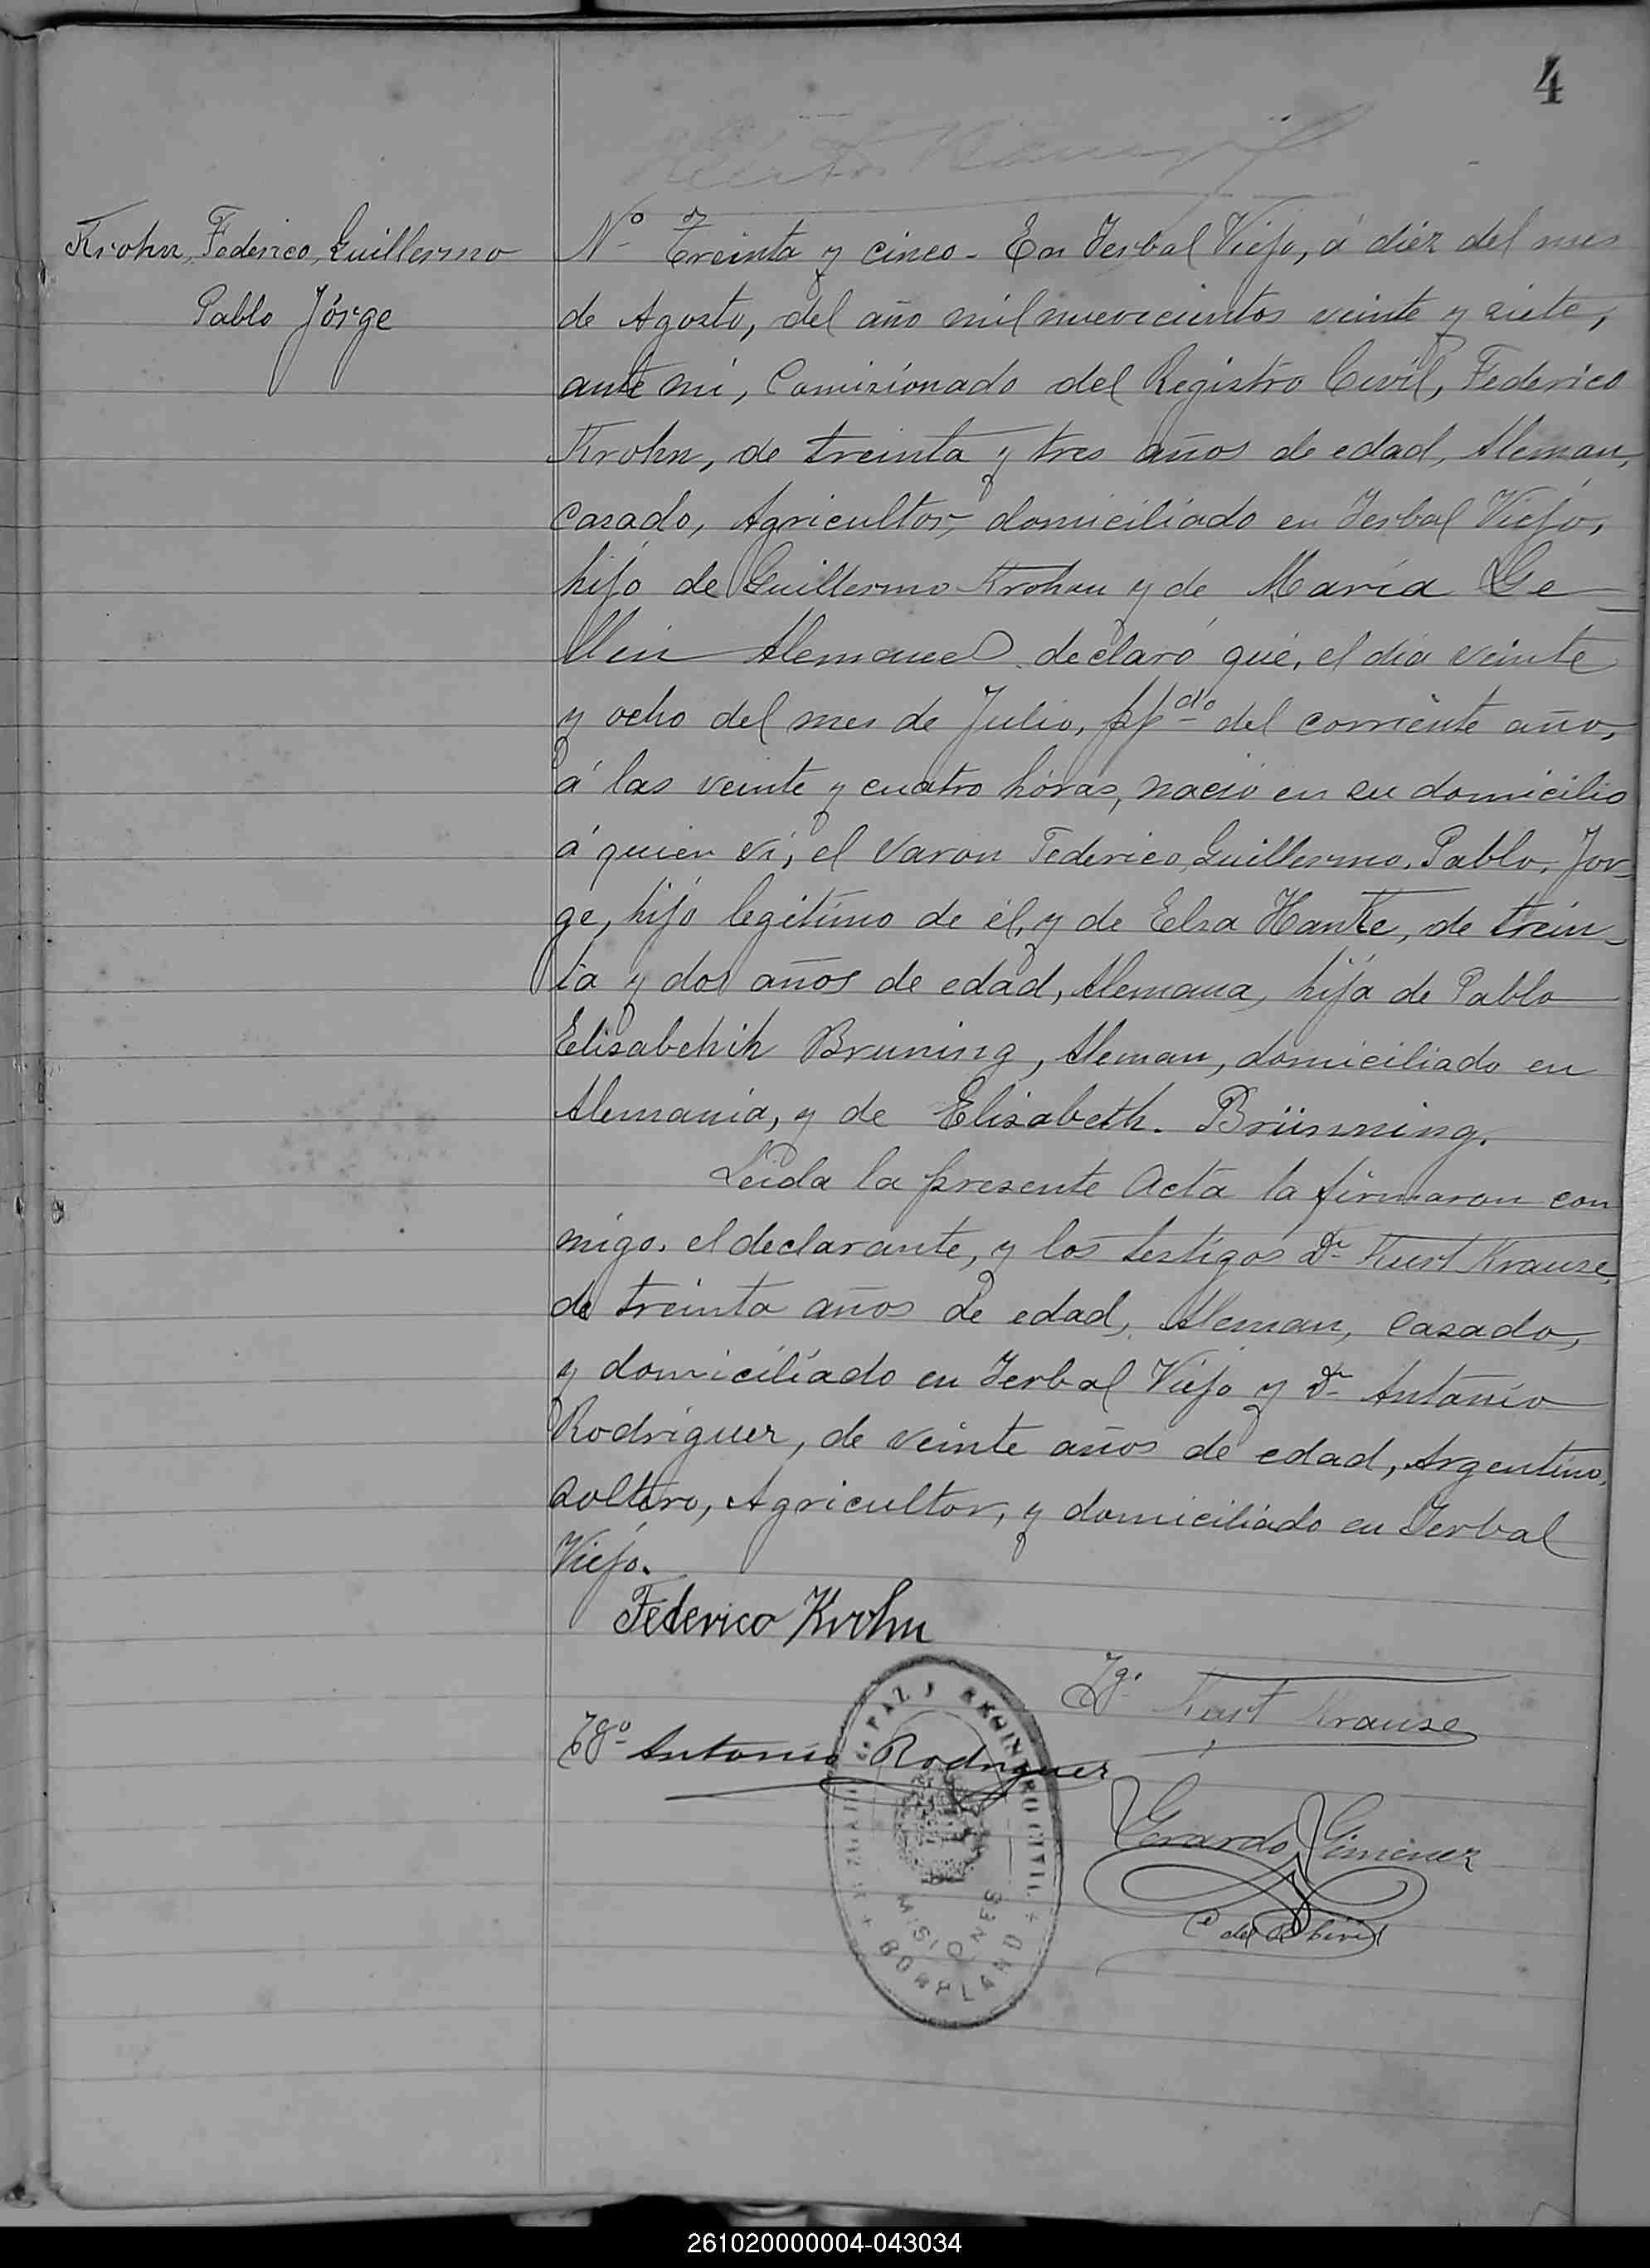 4
Krohn, Federico, Guillermo
Pablo Jórge
Nº Treinta y cinco - En Yerbal Viejo, á diéz del mes
de Agosto, del año mil nuevecientos veinte y siete,
ante mi, Comisionado del Registro Civil, Federico
Krohn, de treinta y tres años de edad, Aleman,
Casado, Agricultor, domiciliado en Yerbal Viejo,
hijo de Guillermo Krohn y de María Ge-
llin Alemanes declaró que, el día veinte
y ocho del mes de Julio, ppdo del corriente año,
á las veinte y cuatro hóras, nació en su domicilio
á quien ví, el Varon Federico, Guillermo, Pablo, Jor-
ge, hijo legítimo de él, y de Elsa Hanke, de trein-
ta y dos años de edad, Alemana, hija de Pablo
Elisabehih Bruning, Aleman, domiciliado en
Alemania, y de Elisabeth. Brünning.
Leida la presente Acta la firmaron con
migo, el declarante, y los testigos Dn Kurt Krause,
de treinta años de edad, Aleman, Casado,
y domiciliado en Yerbal Viejo y Dn Antonio
Rodriguez, de veinte años de edad, Argentino,
Soltero, Agricultor, y domiciliado en Yerbal
Viejo.
Federico Krohn
Tg. Kurt Krause
Tgo Antonio Rodriguez
PAZ Y REGISTRO CIVIL
MISIONES
BOMPLAND
Gerardo Gimenez
C del R Civil
261020000004-043034